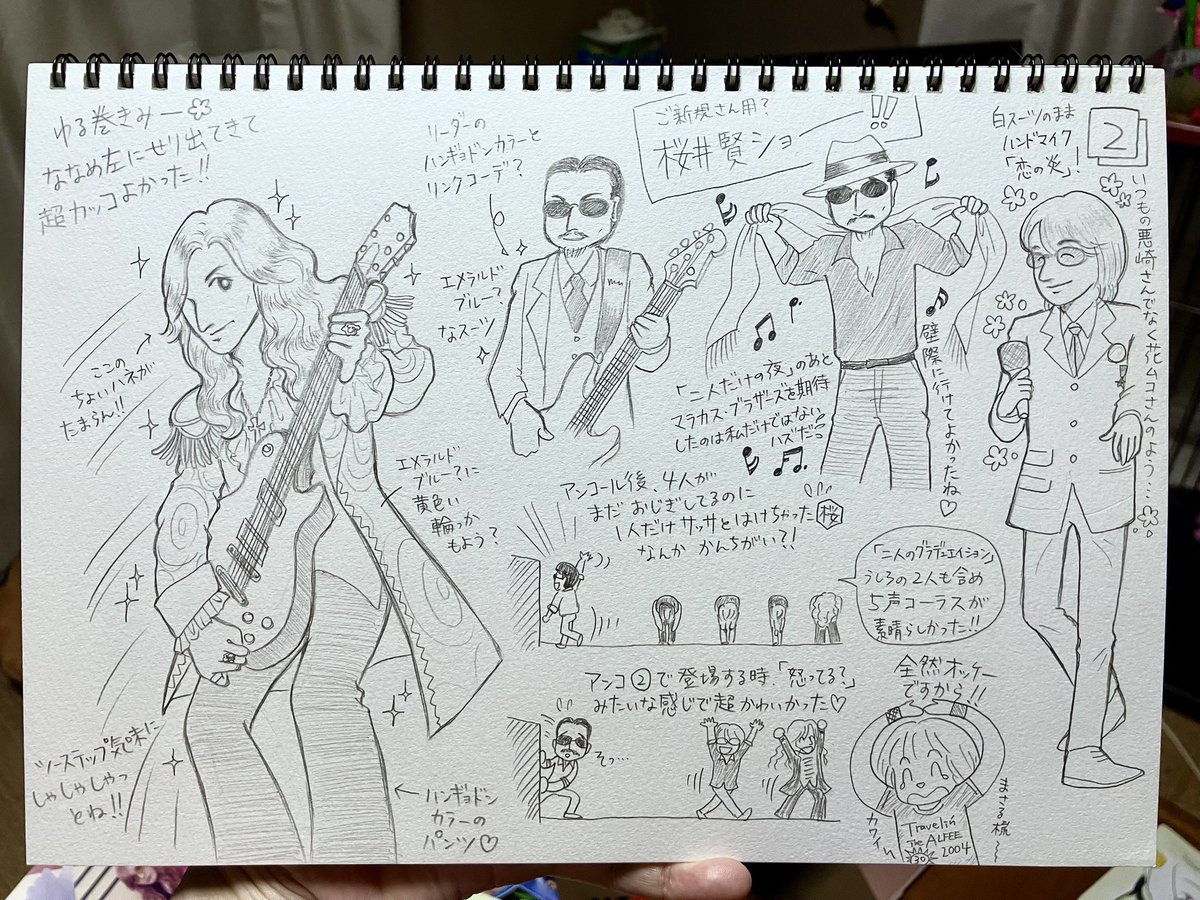 ゆる巻きみー
ななめ左にせり出てきて
超カッコよかった!!
ここの
ちょいハネが
たまらん!!
リーダーの
ハンギョドンカラーと
リンクコーデ?
エメラルド
ブルー?
なスーツ
ご新規さん用?
桜井賢ショー!!
白スーツのまま
ハンドマイク
「恋の炎」!
2
いつもの悪崎さんでなく花ムコさんのよう…
壁際に行けてよかったね♡
「二人だけの夜」のあと
マラカス・ブラザーズを期待
したのは私だけではない
ハズだ
エメラルド
ブルー?に
黄色い
輪っか
もよう?
アンコール後、4人が
まだおじぎしてるのに
1人だけサッサとはけちゃった桜
なんかかんちがい?!
「二人のグラデュエイション」
うしろの2人も含め
5声コーラスが
素晴らしかった!!
アンコ②で登場する時、「怒ってる?」
みたいな感じで超かわいかった♡
そっ…
全然オッケー
ですから!!
カワイイ
まさる梳〜
Travelin'
The ALFEE
30
2004
ツーステップ気味に
しゃしゃしゃっ
とね!!
← ハンギョドン
カラーの
パンツ♡